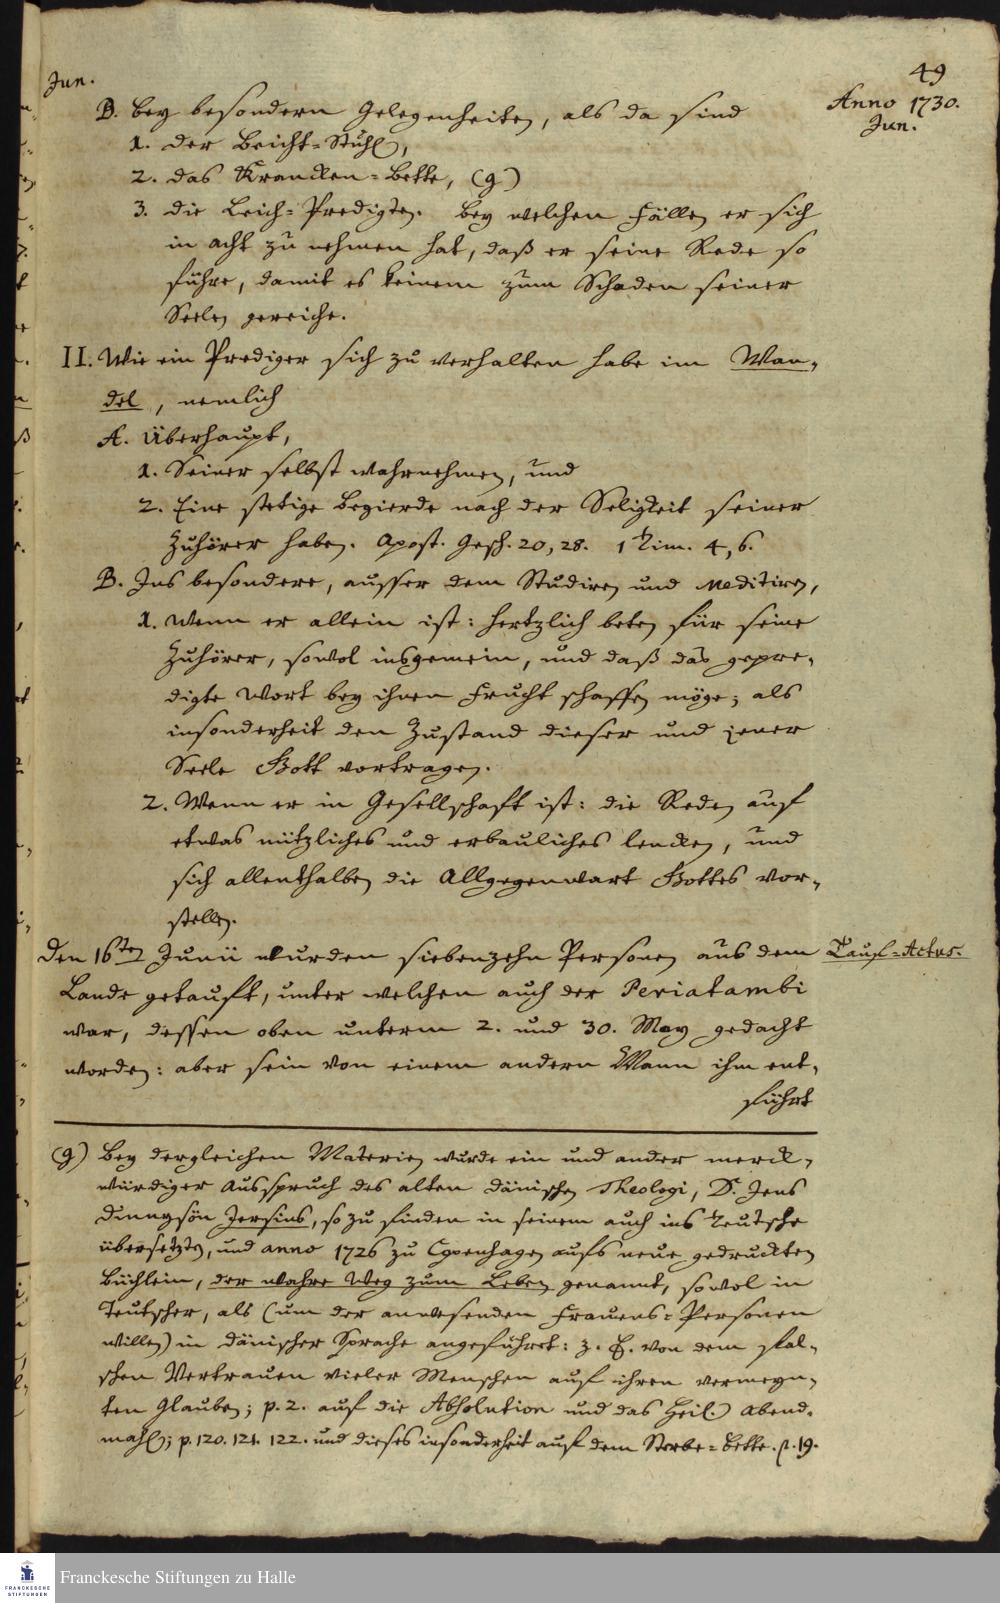 Jun.
49
Anno 1730.
Jun.
B. bey besondern Gelegenheiten, als da sind
1. der Beicht-Stuhl,
2. das Krancken-Bette, (g)
3. die Leich-Predigten. Bey welchen Fällen er sich
in acht zu nehmen hat, daß er seine Rede so
führe, damit es keinem zum Schaden seiner
Seelen gereiche.
II. Wie ein Prediger sich zu verhalten habe im Wan-
del, nemlich
A. Überhaupt,
1. Seiner selbst wahrnehmen, und
2. Eine stetige Begierde nach der Seligkeit seiner
Zuhörer haben. Apost. Gesch. 20, 28. 1 Tim. 4, 6.
B. Ins besondere, ausser dem Studiren und Meditiren,
1. wenn er allein ist: hertzlich beten für seine
Zuhörer, sowol insgemein, und daß das gepre-
digte Wort bey ihnen Frucht schaffen möge; als
insonderheit den Zustand dieser und jener
Seele Gott vortragen.
2. Wenn er in Gesellschaft ist: die Reden auf
etwas nützliches und erbauliches lencken, und
sich allenthalben die Allgegenwart Gottes vor-
stellen.
Den 16ten Junii wurden siebenzehn Personen aus dem
Tauf-Actus.
Lande getauft, unter welchen auch der Periatambi
war, dessen oben unterm 2. und 30. May gedacht
worden: aber sein von einem andern Mann ihm ent-
führt
(g) Bey dergleichen Materien wurde ein und ander merck-
würdiger Ausspruch des alten dänischen Theologi, D. Jens
Dinnysön Jersins, so zu finden in seinem auch ins Teutsche
übersetzten, und anno 1726 zu Copenhagen aufs neue gedruckten
Büchlein, der wahre Weg zum Leben genannt, sowol in
Teutscher, als (um der anwesenden Frauens-Personen
willen) in dänischer Sprache angeführet: z. E. von dem fal-
schen Vertrauen vieler Menschen auf ihren vermeyn-
ten Glauben; p. 2. auf die Absolution und das Heil. Abend-
mahl; p. 120. 121. 122. und dieses insonderheit auf dem Sterbe-Bette. p. 19.
FRANCKESCHE
STIFTUNGEN
Franckesche Stiftungen zu Halle